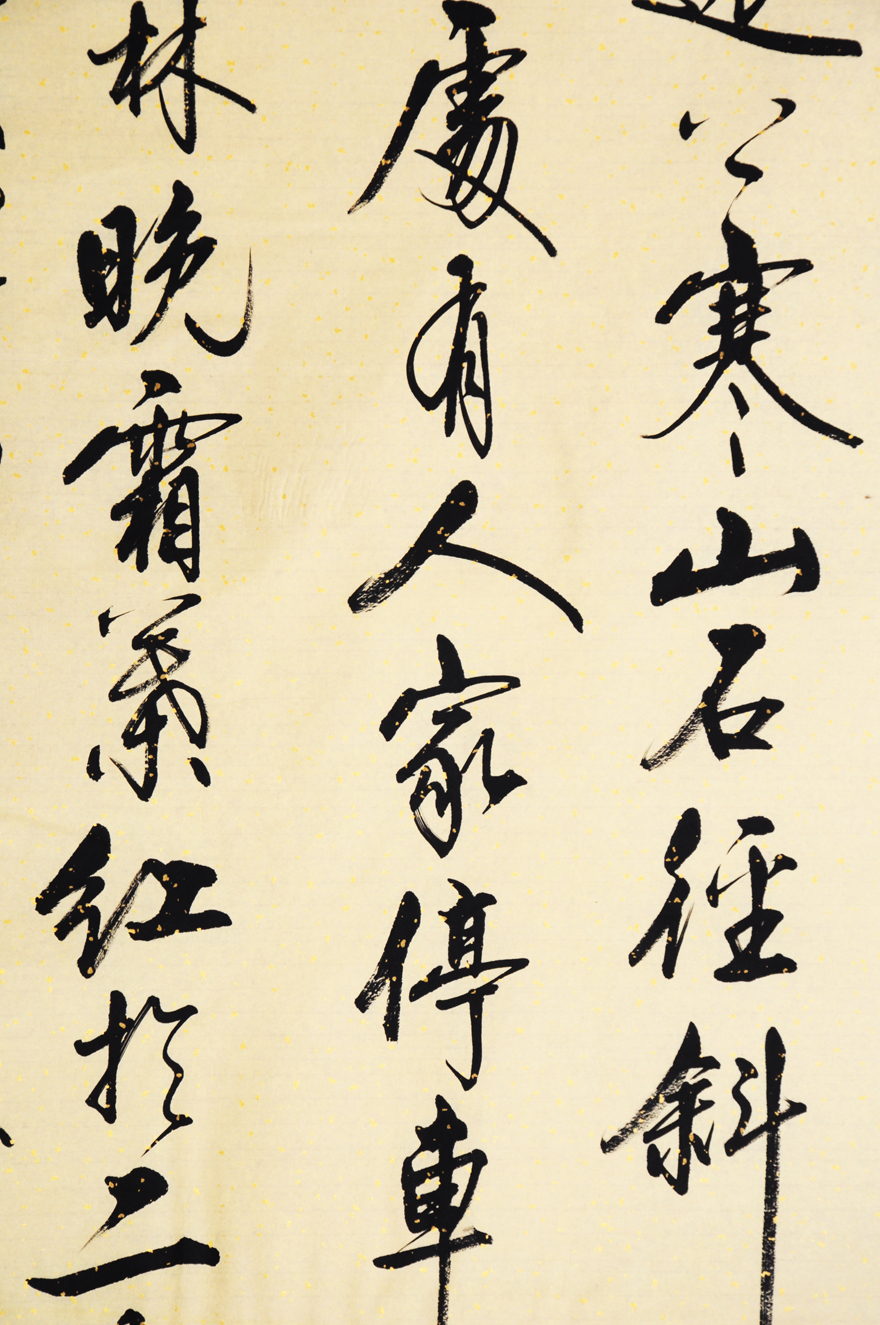 上寒山石徑斜
處有人家停車
林晚霜葉紅於二